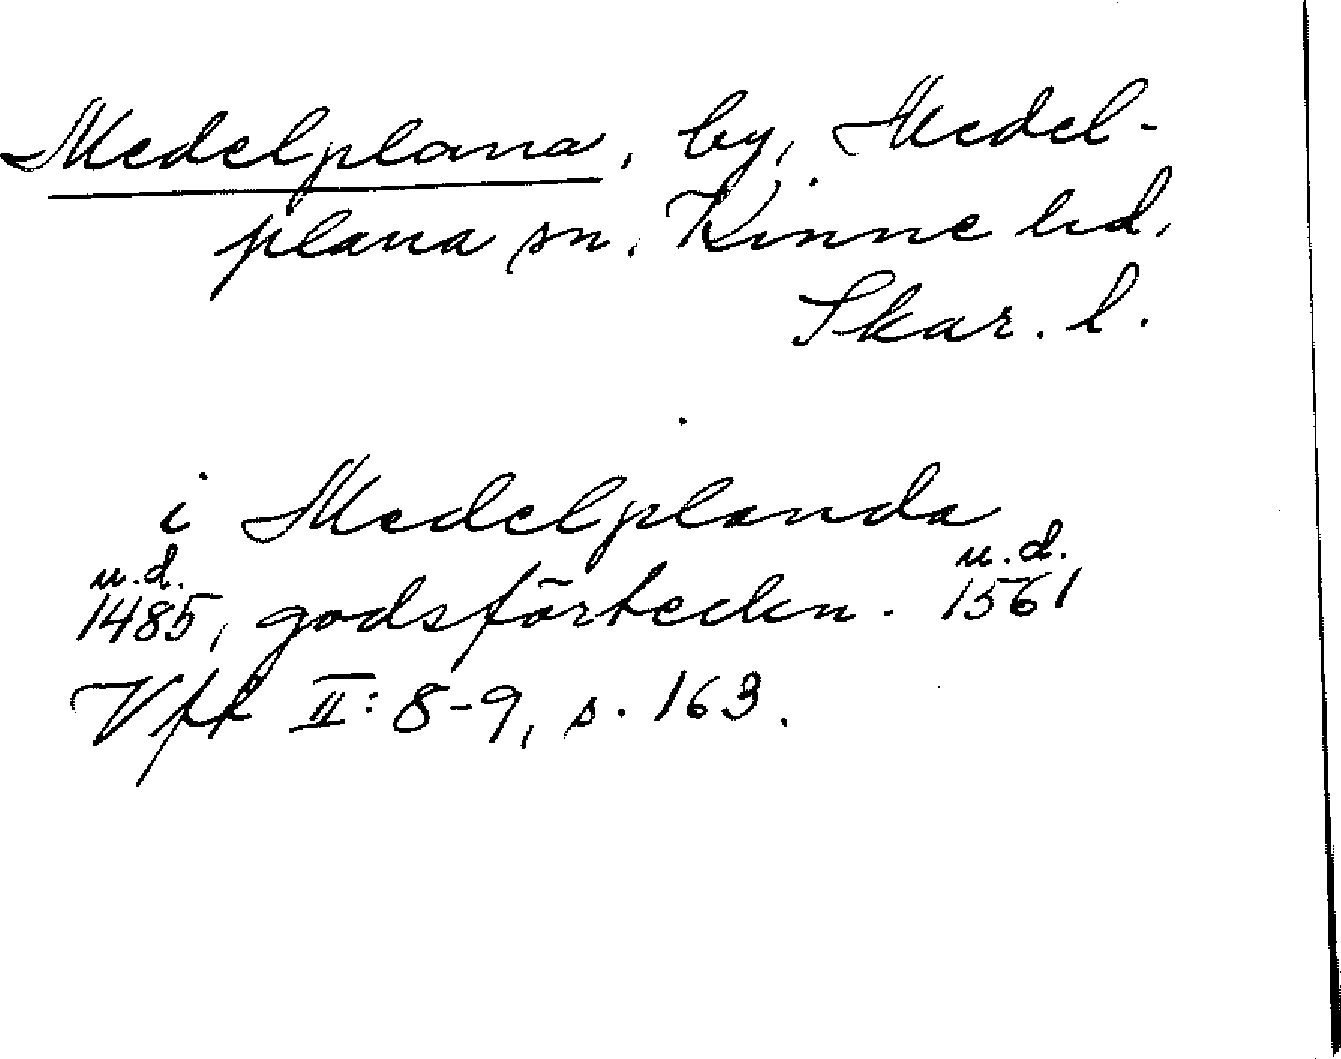 Medelplana, by, Medel-
plana sn. Kinne hd.
Skar. l.
i Medelplanda
u.d. u.d.
1485, godsförteckn. 1561
Vft II: 8-9, s. 163.